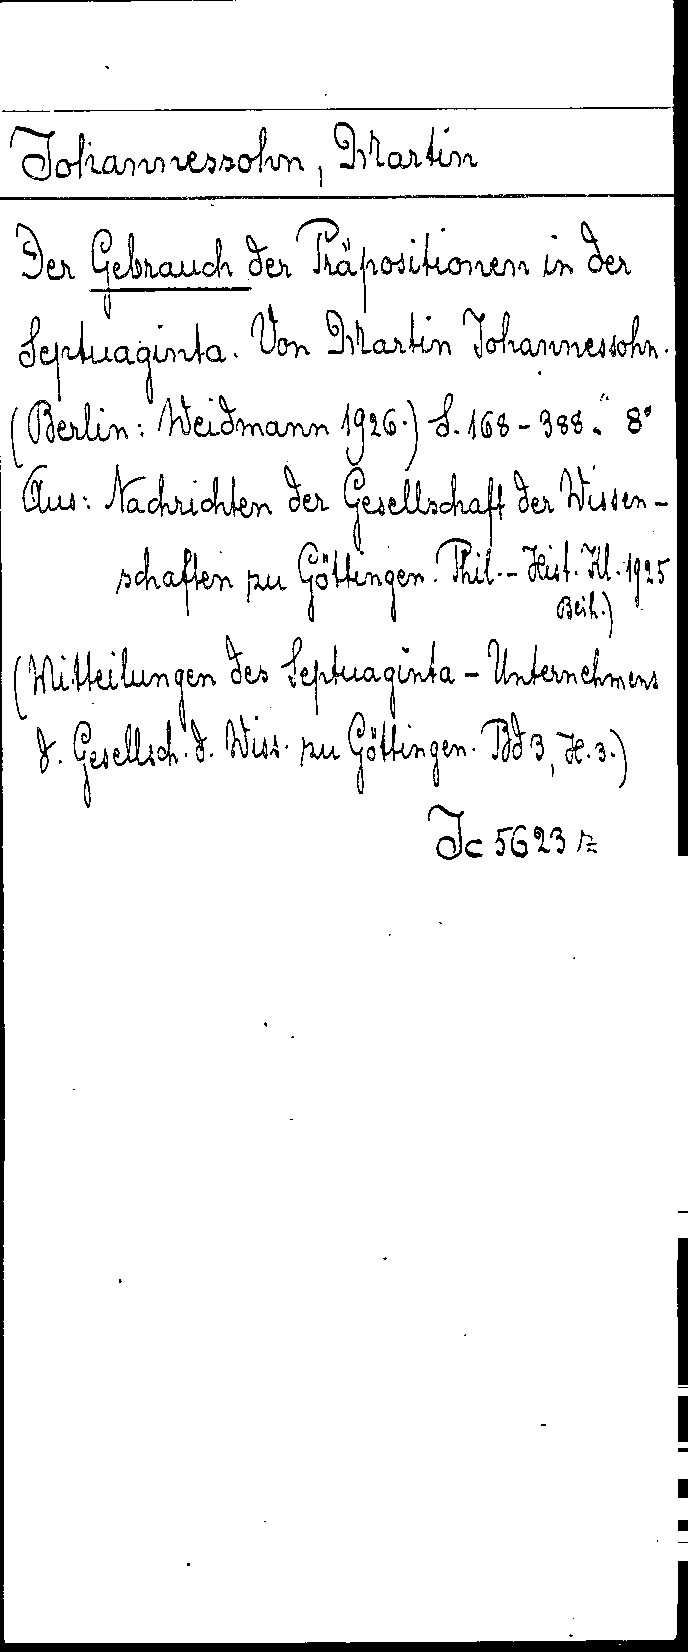 Johannessohn, Martin
Der Gebrauch der Präpositionen in der
Septuaginta. Von Martin Johannessohn.
(Berlin: Weidmann 1926.) S. 168-388. 8°
Aus: Nachrichten der Gesellschaft der Wissen-
schaften zu Göttingen. Phil.-Hist. Kl. 1925
Beih.)
(Mitteilungen des Septuaginta-Unternehmens
d. Gesellsch. d. Wiss. zu Göttingen. Bd 3, H. 3.)
Jc 5623